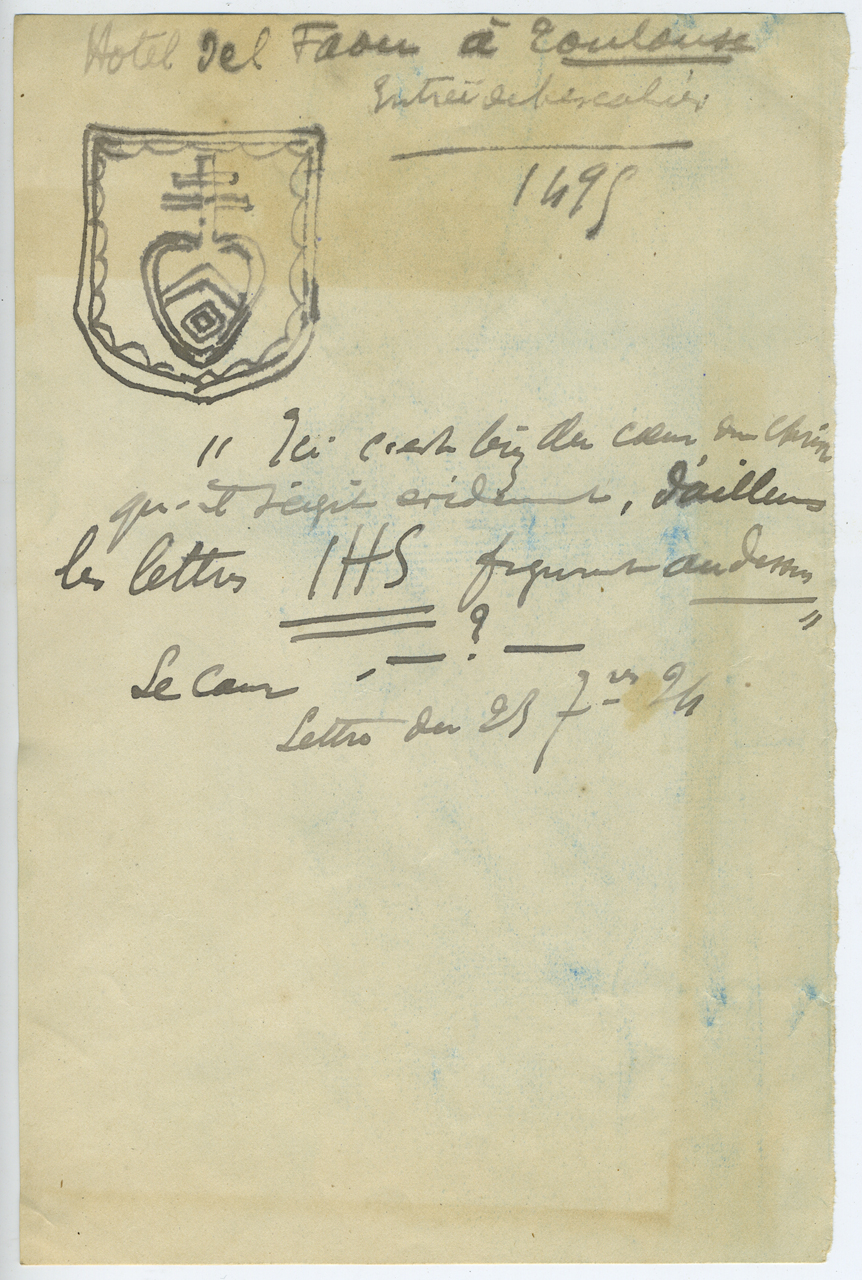 Hotel Del Faou à Toulouse
Entrée de l'escalier
1495
" Ici c'est bien du cœur du Christ
qu'il s'agit évidemment, d'ailleurs
les lettres IHS figurent au dessus
"
— ? —
Le Cour
Lettre du 25 7re 24